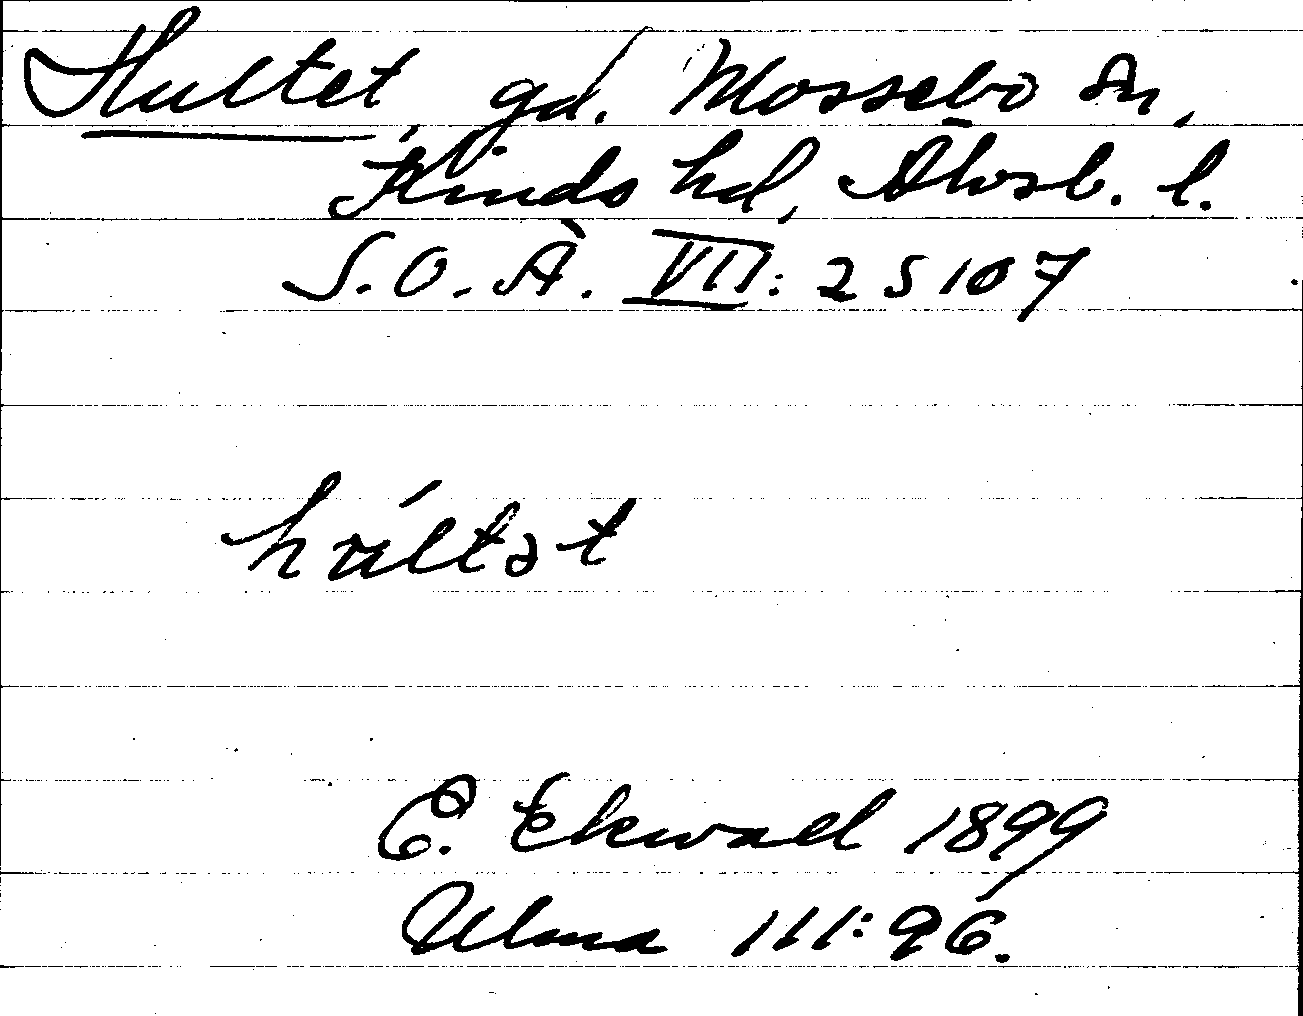 Hultet, gd. Mossebo sn,
Kinds hd, Älvsb. l.
S.O.Ä. VII: 2 S 107
E. Ekwall 1899
Ulma 111:96.